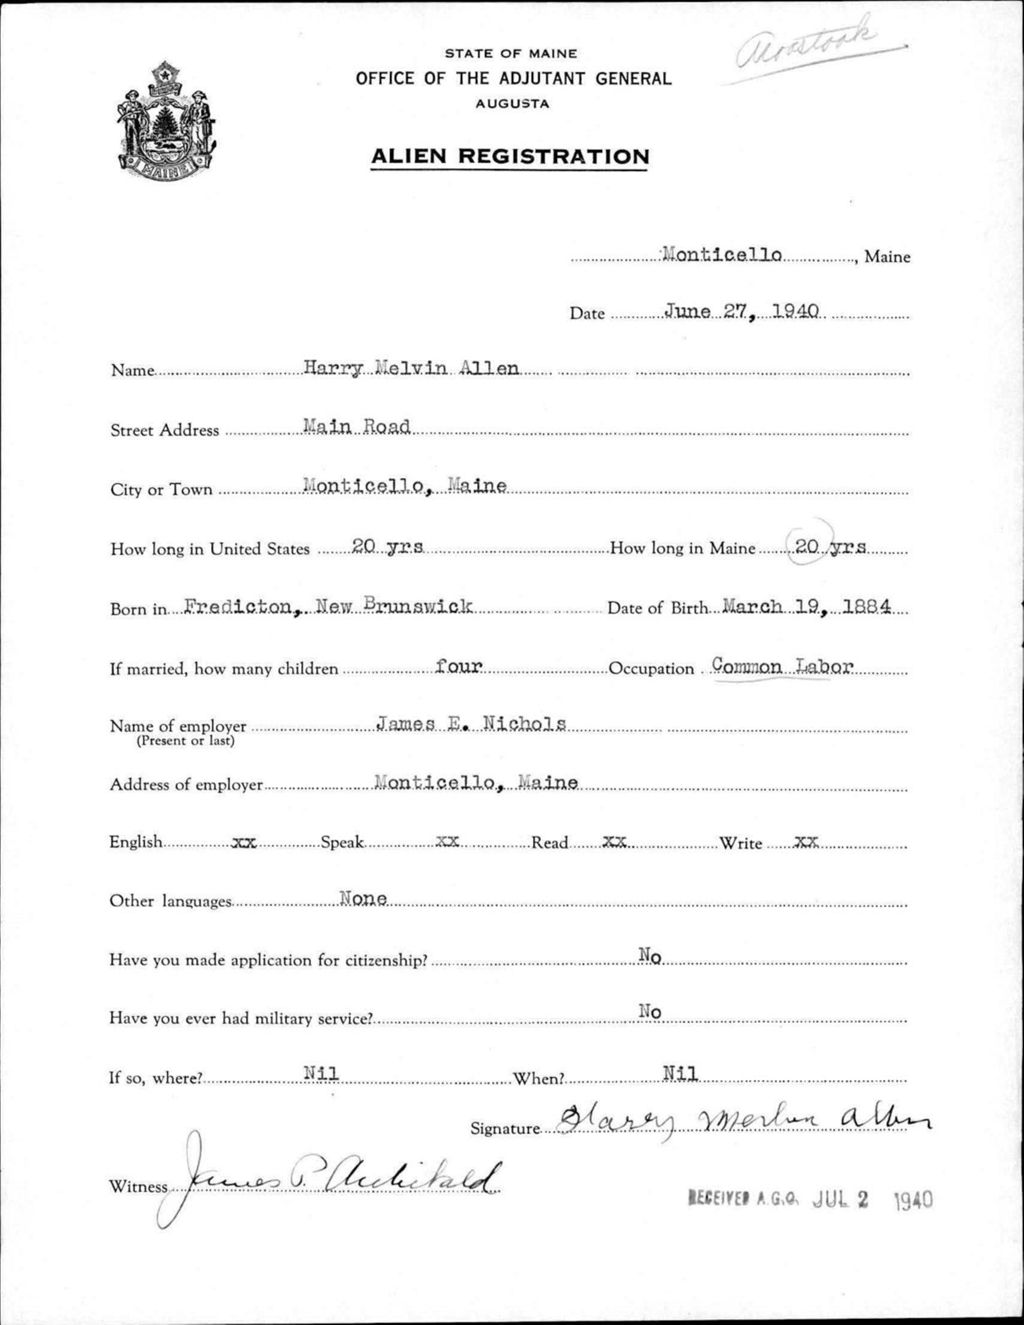 Aroostook
STATE OF MAINE
OFFICE OF THE ADJUTANT GENERAL
AUGUSTA
ALIEN REGISTRATION
MAINE
Monticello, Maine
Date June 27, 1940
Name Harry Melvin Allen
Street Address Main Road
City or Town Monticello, Maine
How long in United States 20 yrs How long in Maine 20 yrs
Born in Fredicton, New Brunswick Date of Birth March 19, 1884
If married, how many children four Occupation Common Labor
Name of employer James E. Nichols
(Present or last)
Address of employer Monticello, Maine
English xx Speak xx Read xx Write xx
Other languages None
Have you made application for citizenship? No
Have you ever had military service? No
If so, where? Nil When? Nil
Signature Harry Merlvn Allen
Witness James P. Archibald
RECEIVED A.G.O. JUL 2 1940